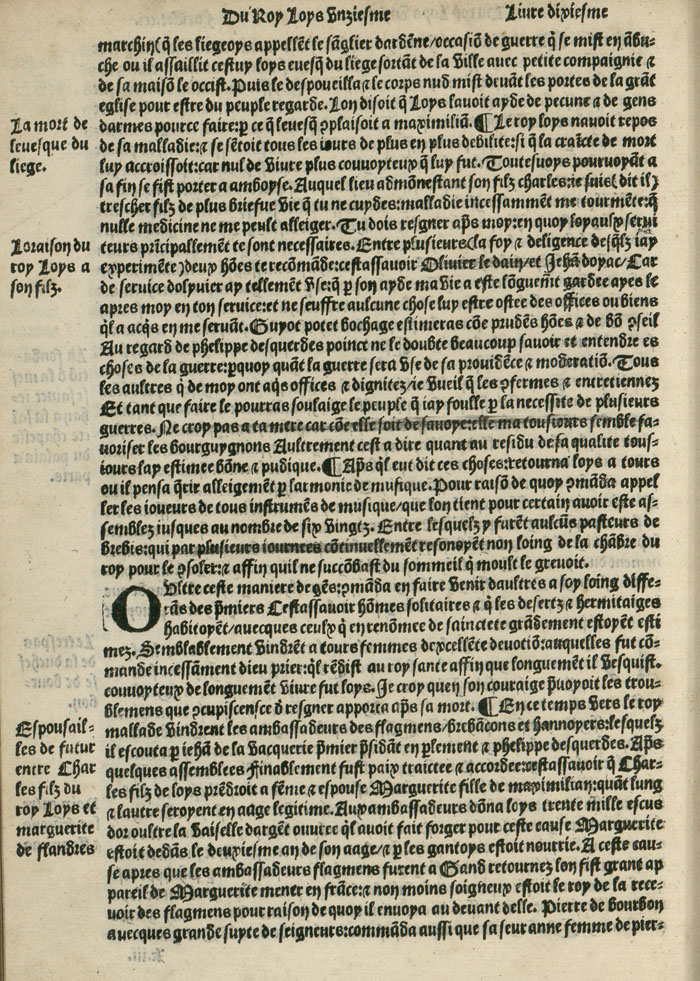 Du Roy Loys Unziesme
Livre dixiesme
marchin(q̃ les liegeoys appellẽt le sãglier dardẽne/occasiõ de guerre q̃ se mist en ãbu-
che ou il assaillit cestuy loys euesq̃ du liege sortãt de la Ville auec petite compaignie ⁊
de sa maisõ le occist. Puis le despoueilla ⁊ le corps nud mist deuãt les portes de la grãt
eglise pour estre du peuple regarde. Lon disoit q̃ Loys lauoit ayde de pecune ⁊ de gens
darmes pource faire:ꝑ ce q̃ leuesq̃ ꝯplaisoit a maximiliã. ¶ Le roy loys nauoit repos
de sa malladie:⁊ se sẽtoit tous les iours de plus en plus debilite:si q̃ la craĩcte de mort
luy accroissoit:car nul de Viure plus couuoyteux q̃ luy fut. Toutesuoys pouruoyãt a
sa fin se fist porter a amboyse. Auquel lieu admõnestant son filz charles:ie suis(dit il)
trescher filz de plus briefue Vie q̃ tu ne cuydes:malladie incessammẽt me tourmẽte:q̃
nulle medicine ne me peult alleiger. Tu dois resgner ap̃s moy:en quoy loyaulx serui
teurs prĩcipallemẽt te sont necessaires. Entre plusieurs(la foy ⁊ deligence desq̃lz iay
experimẽte)deux hões te recõmãde:cestassauoir Oliuier le dain/et Jehã doyac/Car
de seruice doliuier ay tellemẽt Vse:q̃ ꝑ son ayde ma Vie a este lõguemẽt gardee ayes le
apres moy en ton seruice:et ne seuffre aulcune chose luy estre ostee des offices ou biens
q̃l a acq̃s en me seruãt. Guyot potet bochage estimeras cõe prudẽs hões ⁊ de bõ ꝯseil
Au regard de phelippe desquerdes poinct ne le doubte beaucoup sauoir et entendre es
choses de la guerre:ꝑquoy quãt la guerre sera Vse de sa prouidẽce ⁊ moderatiõ. Tous
les aultres q̃ de moy ont aq̃s offices ⁊ dignitez/ie Vueil q̃ les ꝯfermes ⁊ entretiennez
Et tant que faire le pourras soulaige le peuple q̃ iay foulle ꝑ la necessite de plusieurs
guerres. Ne croy pas a ta mere car cõe elle soit de sauoye:elle ma tousiours semble fa-
uoriser les bourguygnons Aultrement cest a dire quant au residu de sa qualite tous-
iours lay estimee bõne ⁊ pudique. ¶ Ap̃s q̃l eut dit ces choses:retourna loys a tours
ou il pensa q̃rir alleigemẽt ꝑ larmonie de musique. Pour raisõ de quoy ꝯmãda appel
ler les ioueurs de tous instrumẽs de musique/que lon tient pour certain auoir este as-
semblez iusques au nombre de six Vingtz. Entre lesquelz y furẽt aulcũs pasteurs de
brebis:qui par plusieurs iournees cõtinuellemẽt resonoyẽt non loing de la chãbre du
roy pour le ꝯsoler:⁊ affin quil ne succõbast du sommeil q̃ moult le greuoit.
OUltre ceste maniere de gẽs:ꝯmãda en faire Venir daultres a soy loing diffe-
rãs des p̃miers Cestassauoir hõmes solitaires ⁊ q̃ les desertz ⁊ hermitaiges
habitoyẽt/auecques ceulx q̃ en renõmee de sainctete grãdement estoyẽt esti
mez. Semblablement Vindrẽt a tours femmes dexcellẽte deuotiõ:auquelles fut cõ-
mande incessãment dieu prier:q̃l rẽdist au roy sante affin que longuemẽt il Vesquist.
couuoyteux de longuemẽt Viure fut loys. Je croy quen son couraige p̃uoyoit les trou-
blemens que ꝯcupiscensce d̃ resgner apporta ap̃s sa mort. ¶ En ce temps Vers le roy
mallade Vindrent les ambassadeurs des flagmens/brebãcons et hannoyers:lesquelz
il escouta ꝑ iehã de la Vacquerie p̃mier p̃sidãt en ꝑlement ⁊ phelippe desquerdes. Ap̃s
quelques assemblees finablement fust paix traictee ⁊ accordee:cestassauoir q̃ Char-
les filz de loys prẽdroit a fẽme ⁊ espouse Marguerite fille de maximilian:quãt lung
⁊ lautre seroyent en aage legitime. Aux ambassadeurs dõna loys trente mille escus
dor oultre la Vaiselle dargẽt ouuree q̃l auoit fait forger pour ceste cause Marguerite
estoit dedãs le deuxiesme an de son aage/⁊ ꝑ les gantoys estoit nourrie. A ceste cau-
se apres que les ambassadeurs flagmens furent a Gand retournez lon fist grant ap
pareil de Marguerite mener en frãce:⁊ non moins soigneux estoit le roy de la rece-
uoir des flagmens pour raison de quoy il enuoya au deuant delle. Pierre de bourbon
auecques grande suyte de seigneurs:commãda aussi que sa seur anne femme de pier-
La mort de
leuesque du
liege.
Loraison du
roy Loys a
son filz.
Espousail-
les de futur
entre Char
les filz du
roy Loys et
marguerite
de flandres